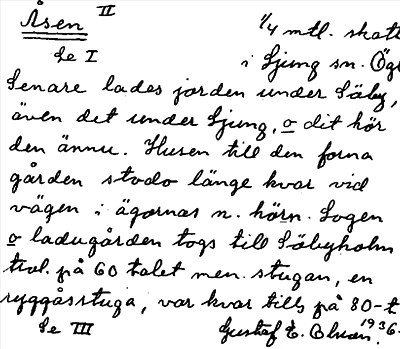 Åsen II 1/4 mtl. skatte
Se I i Ljung sn. Ögl
Senare lades jorden under Säby,
även det under Ljung, o dit hör
den ännu. Husen till den forna
gården stodo länge kvar vid
vägen i ägornas n. hörn. Logen
o ladugården togs till Säbyholm
trol. på 60 talet men stugan, en
ryggåsstuga, var kvar tills på 80-t
Se III Gustaf E. 1936.